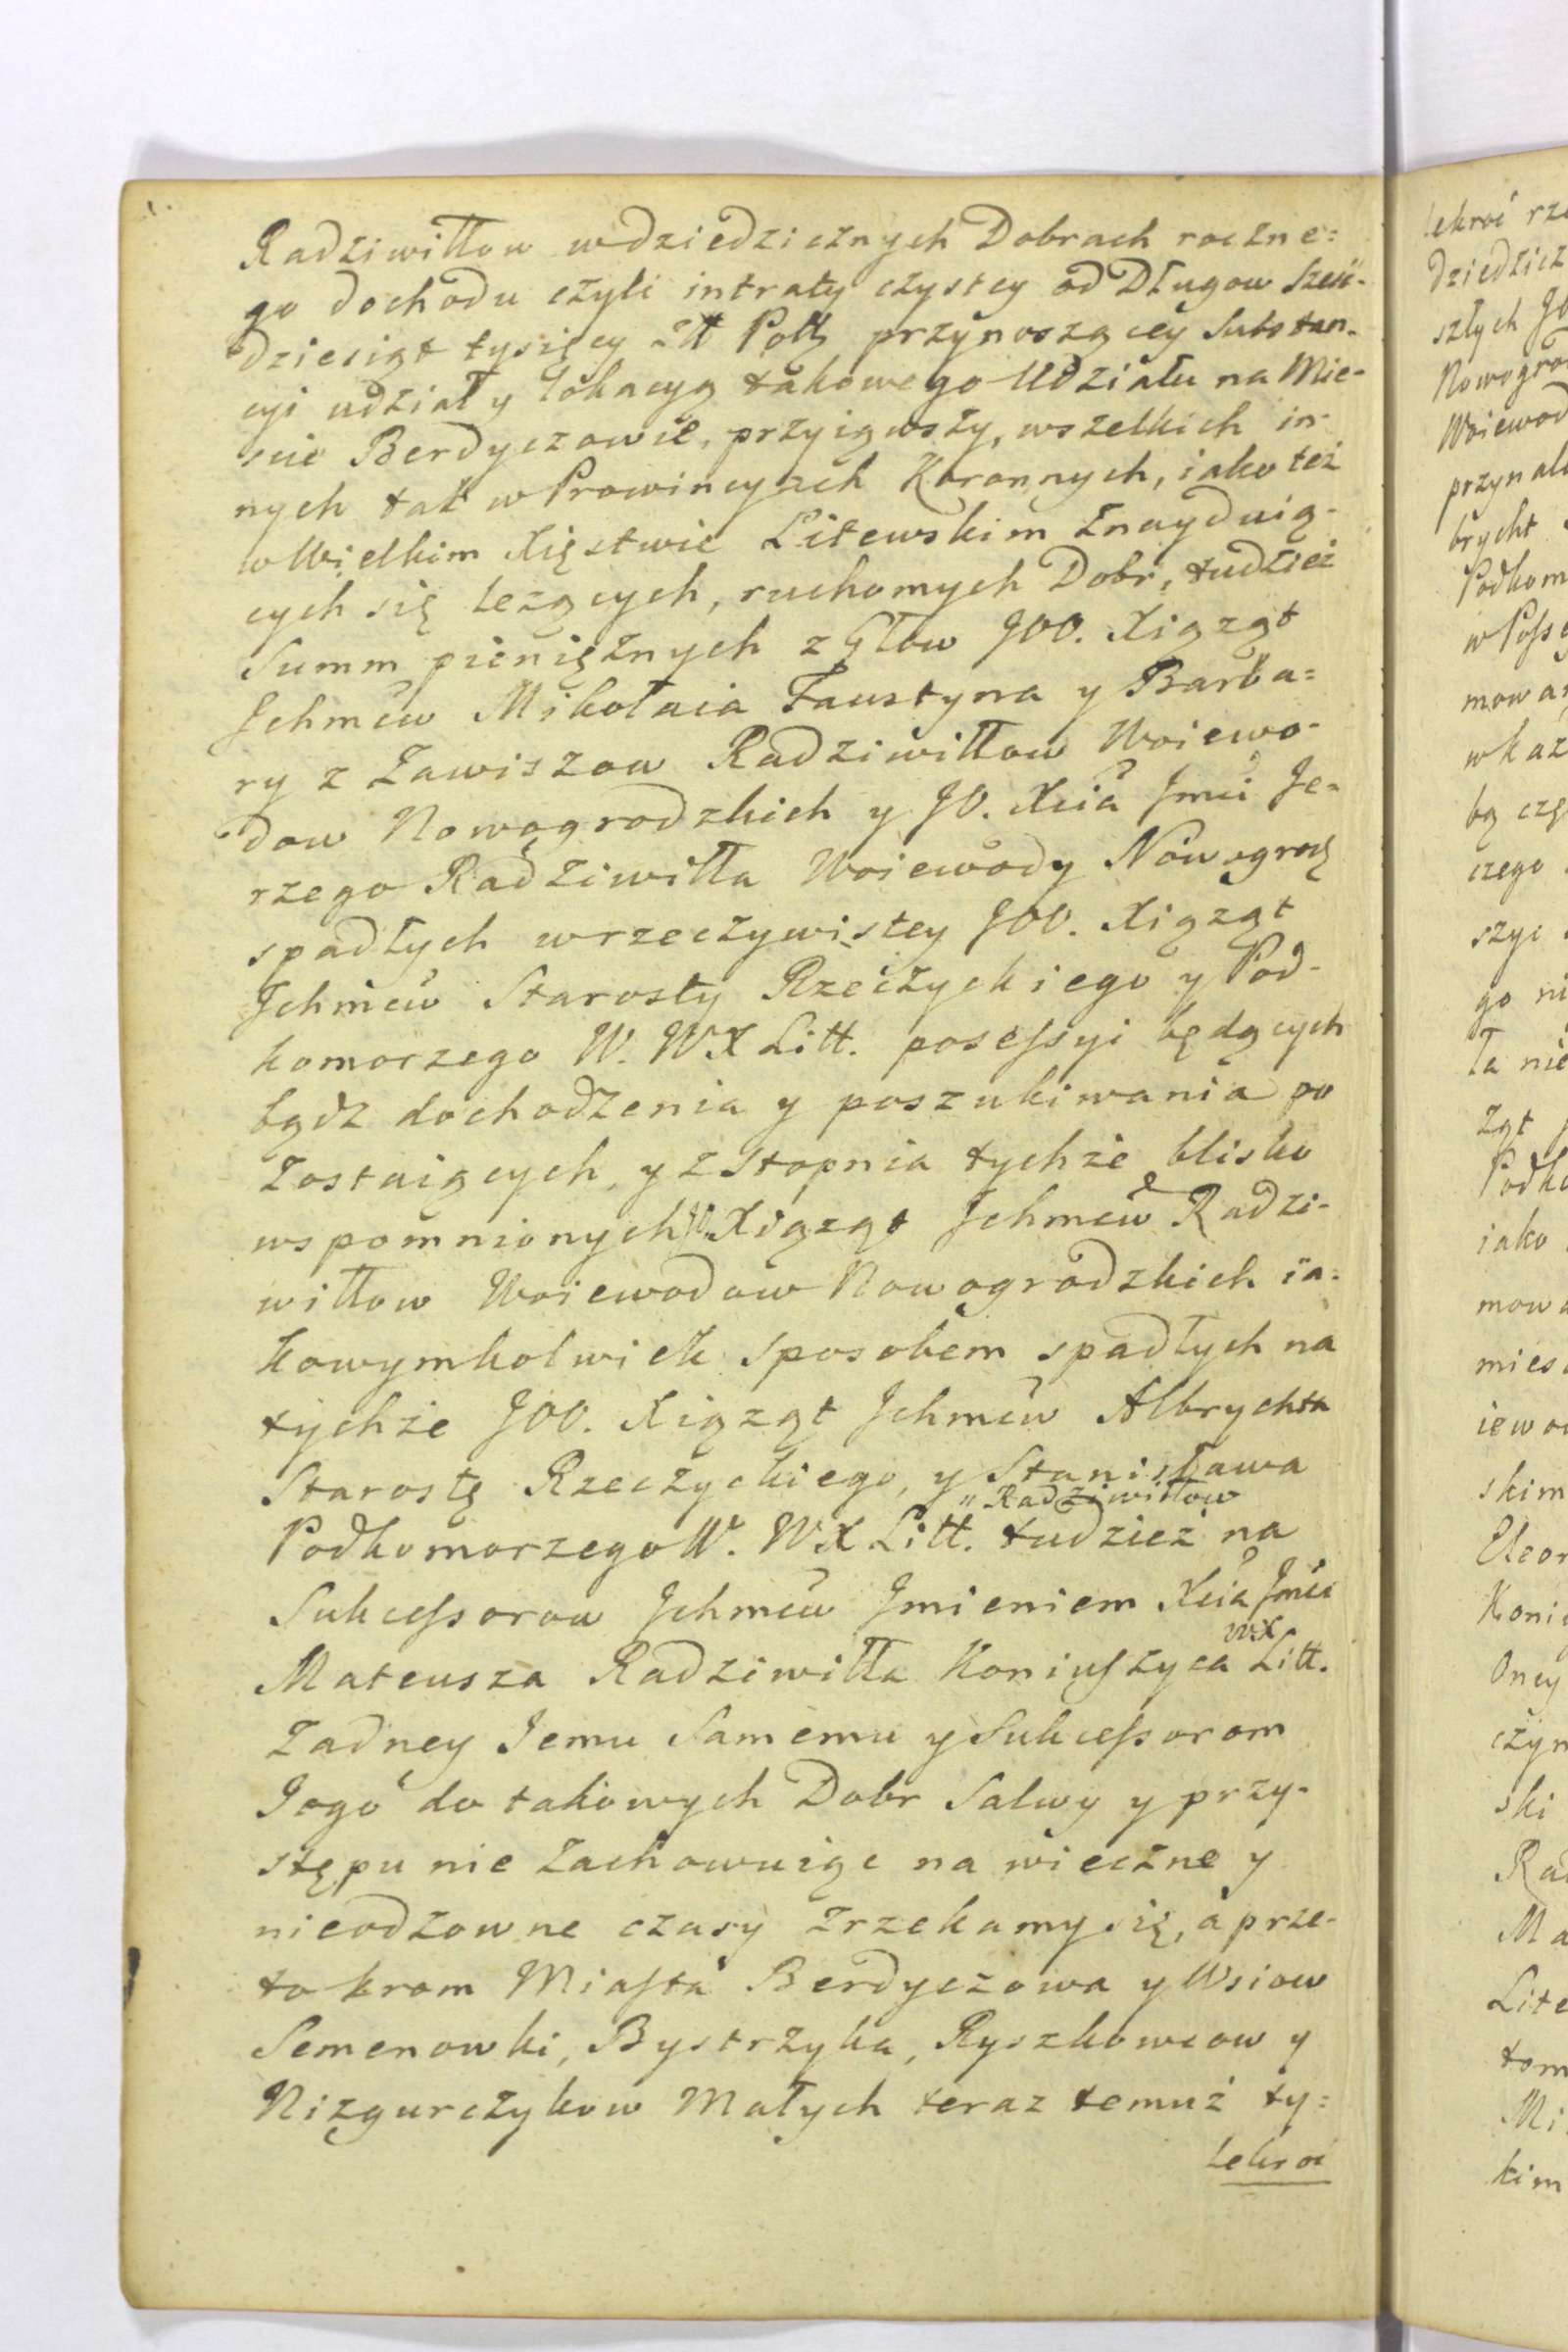 Radziwiłłow w dziedzicznych Dobrach roczne=
go dochodu czyli intraty czystey od Długow Sześ-
dziesiąt tysięcy Zł Polʒ przynoszącey Substan-
cyi udział y lokacyą takowego Udziału na Mie-
scie Berdyczowie, przyiąwszy, wszelkich in-
nych tak w Prowincyach Koronnych, iako też
w Wielkim Xięstwie Litewskim Znayduią-
cych się leżących, ruchomych Dobr, tudzież
Summ pieniężnych z Głow JOO. Xiążąt
Jchmćw Mikołaia Faustyna y Barba=
ry z Zawiszow Radziwiłłow Woiewo-
dow Nowogrodzkich y JO. Xcia Jmci Je-
rzego Radziwiłła Woiewody Nowogrodʒ
spadłych w rzeczywistey JOO. Xiążąt
Jchmćw Starosty Rzeczyckiego y Pod-
komorzego W. WX Litt. possessyi będących
bądz dochodzenia y poszukiwania po
Zostaiących, y z Stopnia tychże blisko
wspomnionych JO. Xiążąt Jchmćw Radzi-
wiłłow Woiewodow Nowogrodzkich ia-
kowymkolwiek sposobem spadłych na
tychże JOO. Xiążąt Jchmćw Albrychta
Starostę Rzeczyckiego, y Stanisława
" Radziwiłłow
Podkomorzego W. WX Litt. tudzież na
Sukcessorow Jchmćw Jmieniem Xcia Jmći
WX
Mateusza Radziwiłła Koniuszyca Litt.
Zadney Jemu Samemu y Sukcessorom
Jego do takowych Dobr Salwy y przy-
stępu nie Zachowuiąc na wieczne y
nieodzowne czasy Zrzekamy się, a prze-
to krom Miasta Berdyczowa y Wsiow
Semenowki, Bystrzyka, Ryszkowcow y
Nizgurczykow Małych teraz temuż ty=
lekroć
lekroć rze
dziedzicz
szłych JO
Nowogrod
Woiewod
przynale
brycht
Podkom
w Posse
mowan
w kaz
bą czę
czego
szyi
go ni
ła nie
Ząt
Podko
iako
mowa
mies
iewo
skim
Eleon
Koni
Oney
czyn
ski
Rad
Ma
Lite
tom
Mi
kim